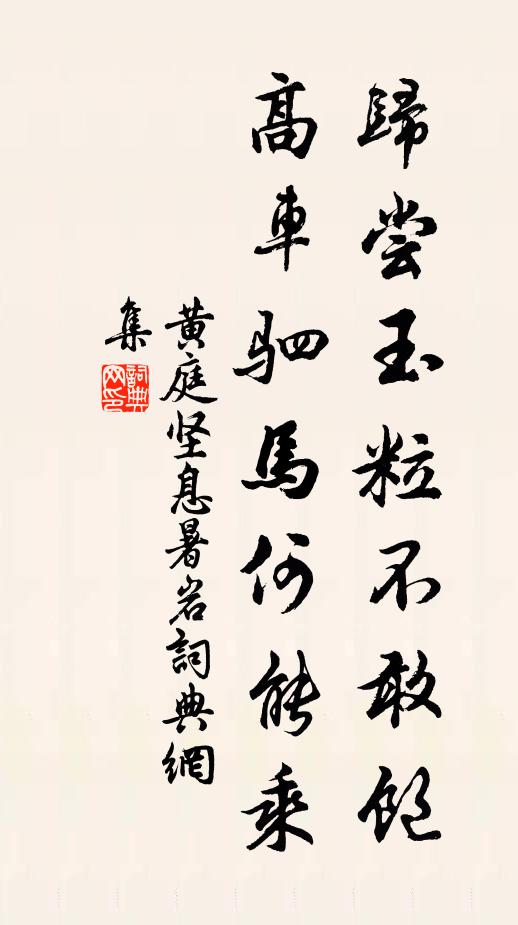 歸嘗玉粒不敢飽
高車駟馬何能乘
黄庭坚息暑岩詞典網
集
詞典網印